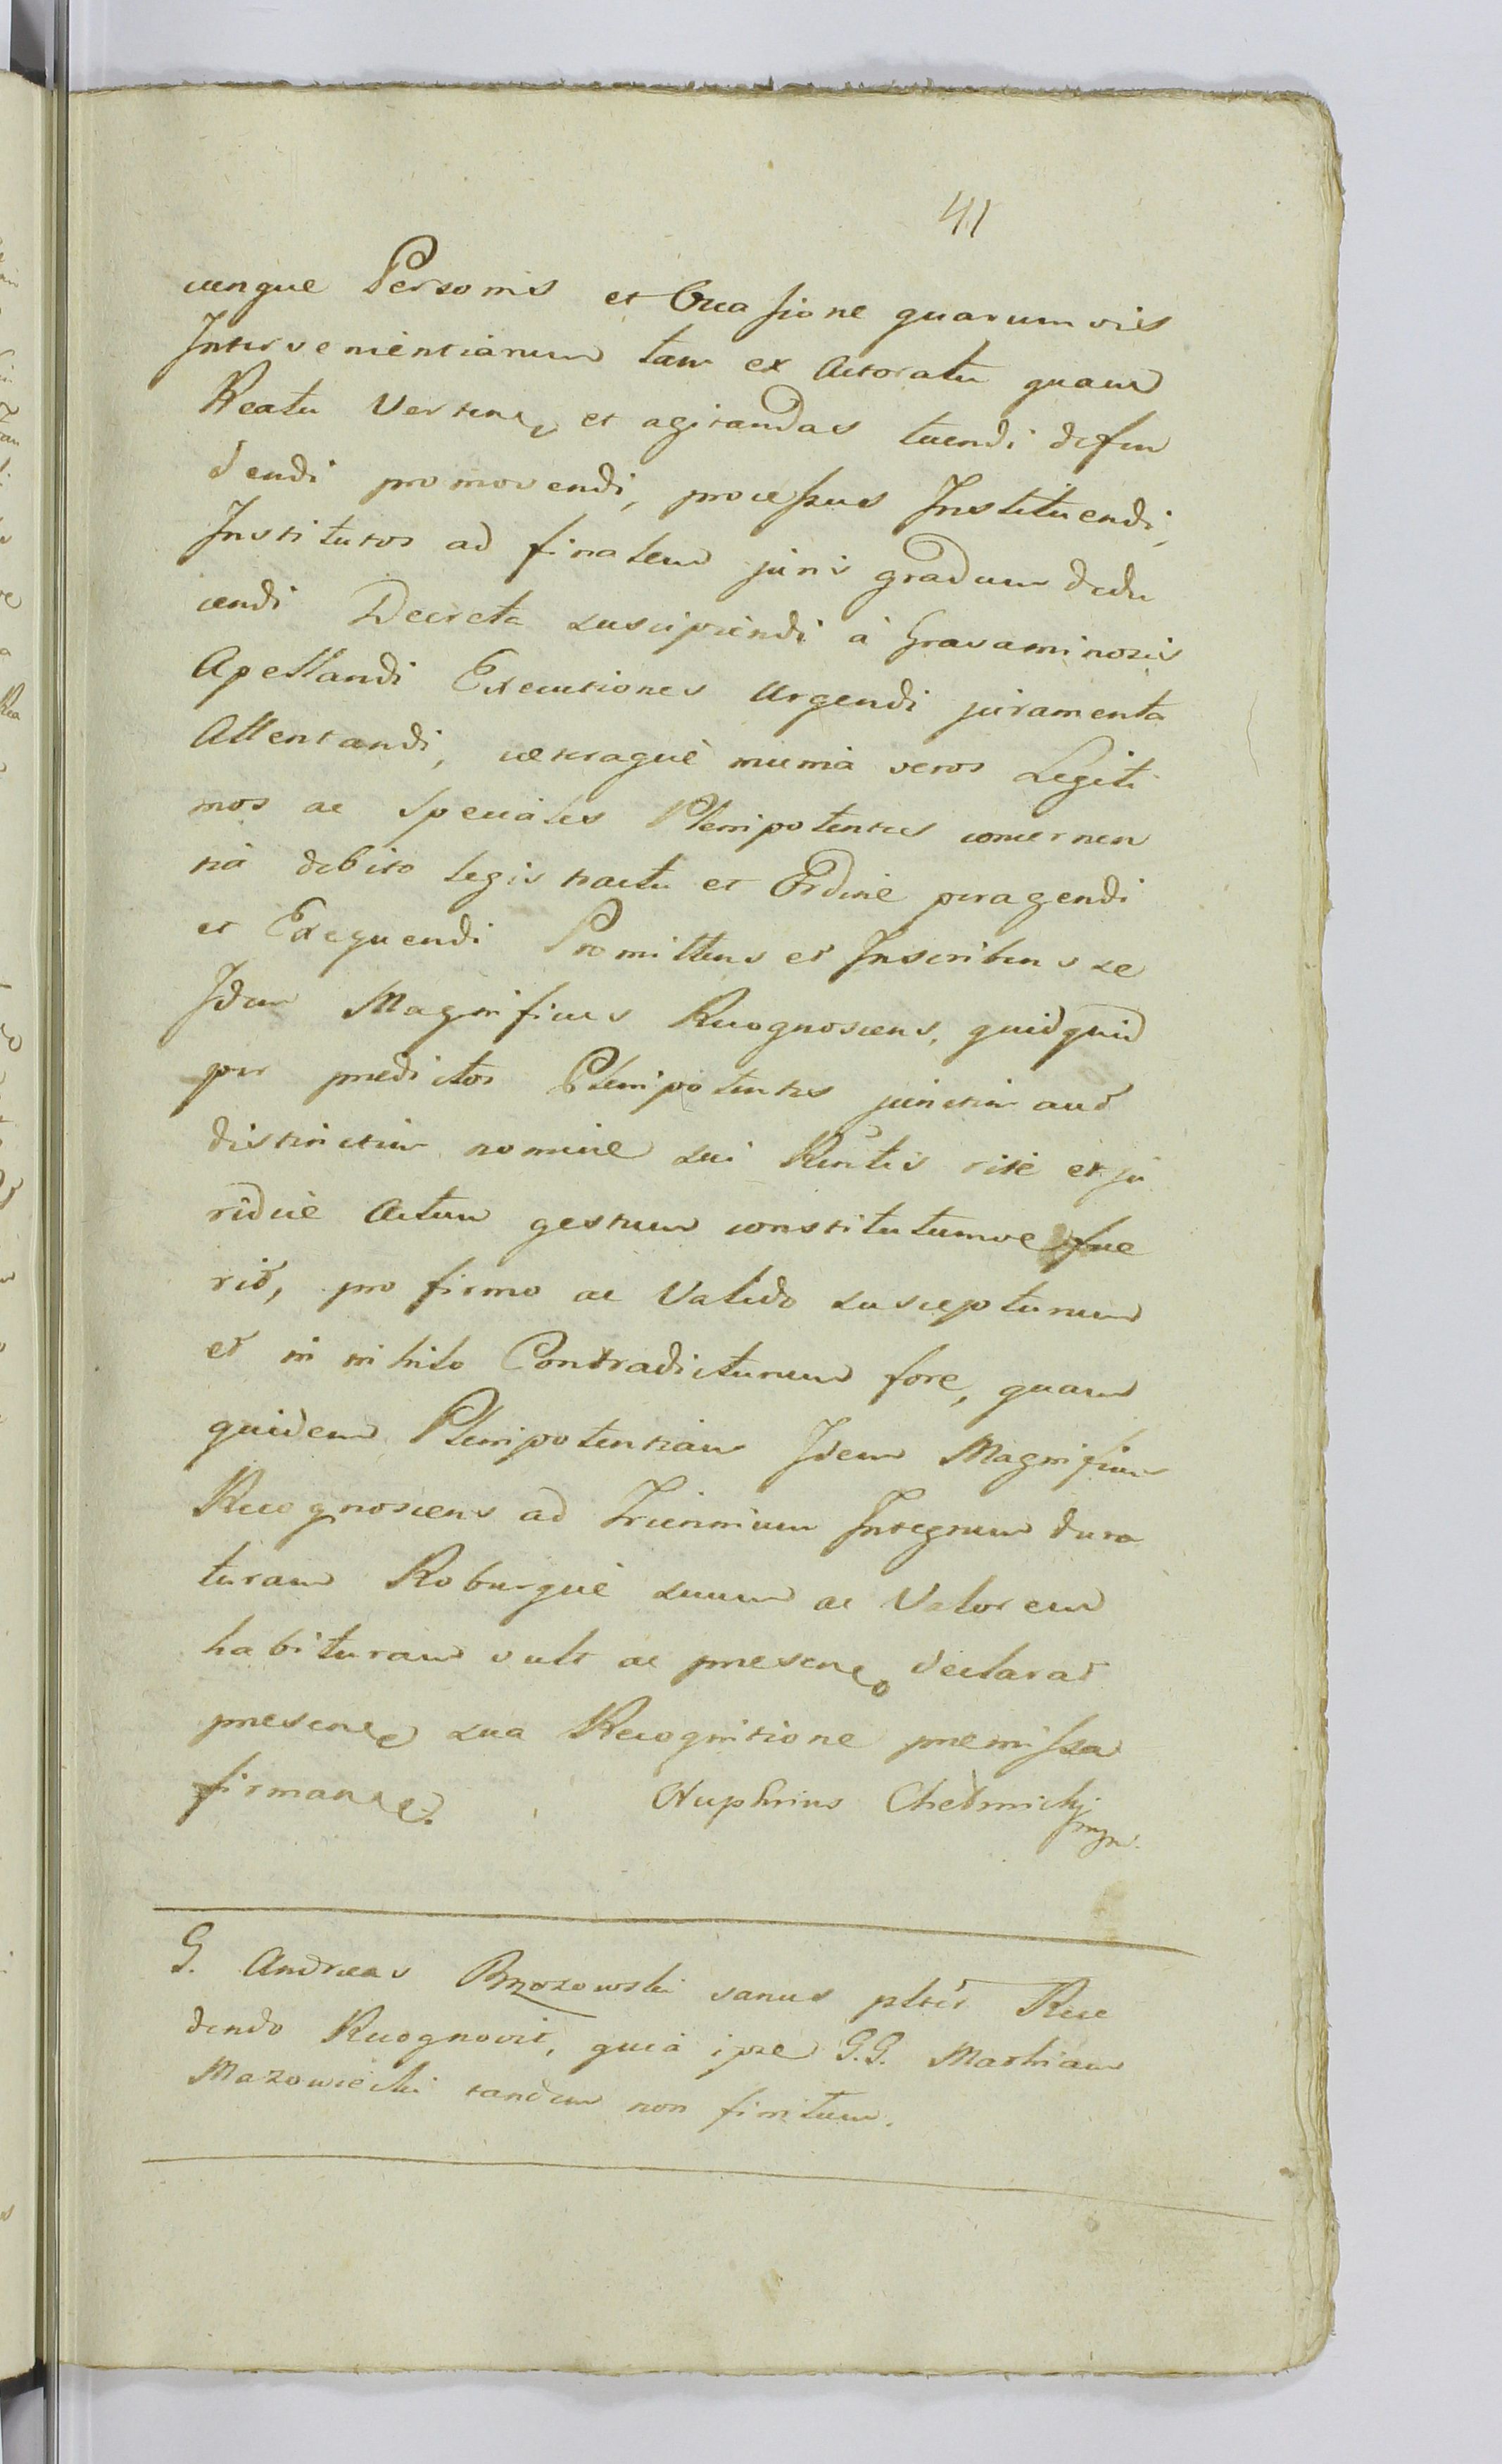 41
cunque Personis et Occasione quarumvis
Intervenientiarum tam ex Actoratu quam
Reatu Verten et agitandas tuendi defen
dendi promovendi, processus Instituendi,
Institutos ad finalem juris gradum dedu
cendi Decreta suscipiendi à Gravaminosis
Apellandi Executiones Urgendi juramenta
Attentandi, cæteraque munia veros Legiti
mos ac Speciales Plenipotentes concernen
tia debito legis tractu et Ordine peragendi
et Exequendi Promittens et Inscribens se
Idem Magnificus Recognoscens, quidquid
per predictos Plenipotentes junctim aut
distinctim nomine sui Rentis rite et ju
ridice Actum gestum constitutumve fue
rit, pro firmo ac Valido suscepturum
et in nihilo Contradicturum fore, quam
quidem Plenipotentiam Idem Magnificus
Recognoscens ad Triennium Integrum dura
turam Roburque suum ac Valorem
habituram vult ac presen declarat
presen sua Recognitione premissa
firman. Onuphrius Chełmicki
mpr.
G. Andreas Brzozowski sanus plkr Rece
dendo Recognovit, quia ipse G.G. Mathiam
Mazowiecki tandem non finitum.